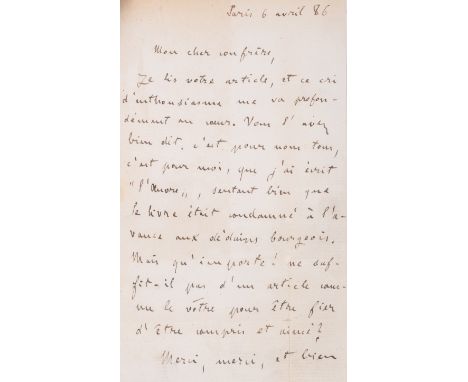 Paris 6 avril 86
Mon cher confrère,
Je lis votre article, et ce cri
d'enthousiasme me va profon-
dément au cœur. Vous l'avez
bien dit, c'est pour nous tous,
c'est pour moi, que j'ai écrit
"l'Œuvre", sentant bien que
le livre était condamné à l'a-
vance aux dédains bourgeois.
Mais qu'importe! ne suf-
fit-il pas d'un article com-
me le vôtre pour être fier
d'être compris et aimé?
Merci, merci, et bien